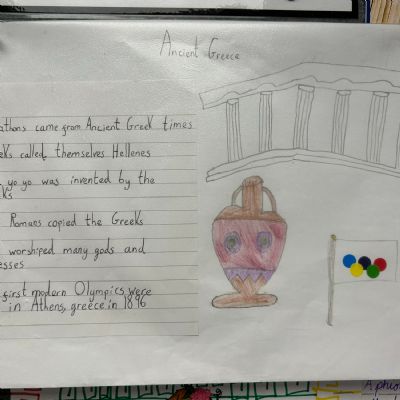 Ancient Greece
athons came from Ancient Greek times
eks called themselves Hellenes
yo yo was invented by the
ks
Romans copied the Greeks
worshiped many gods and
esses
first modern Olympics were
in Athens, greece in 1896